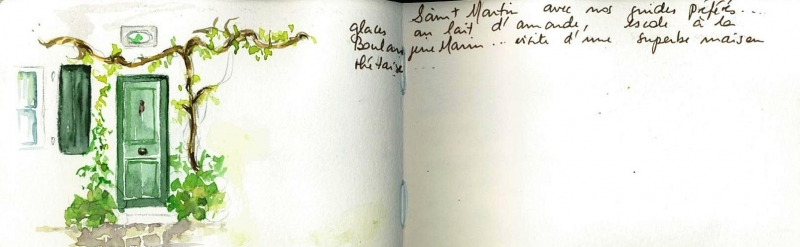 Saint Martin avec nos guides préférés...
glaces au lait d'amande, escale à la
Boulangerie Marin... visite d'une superbe maison
rhétaise ...